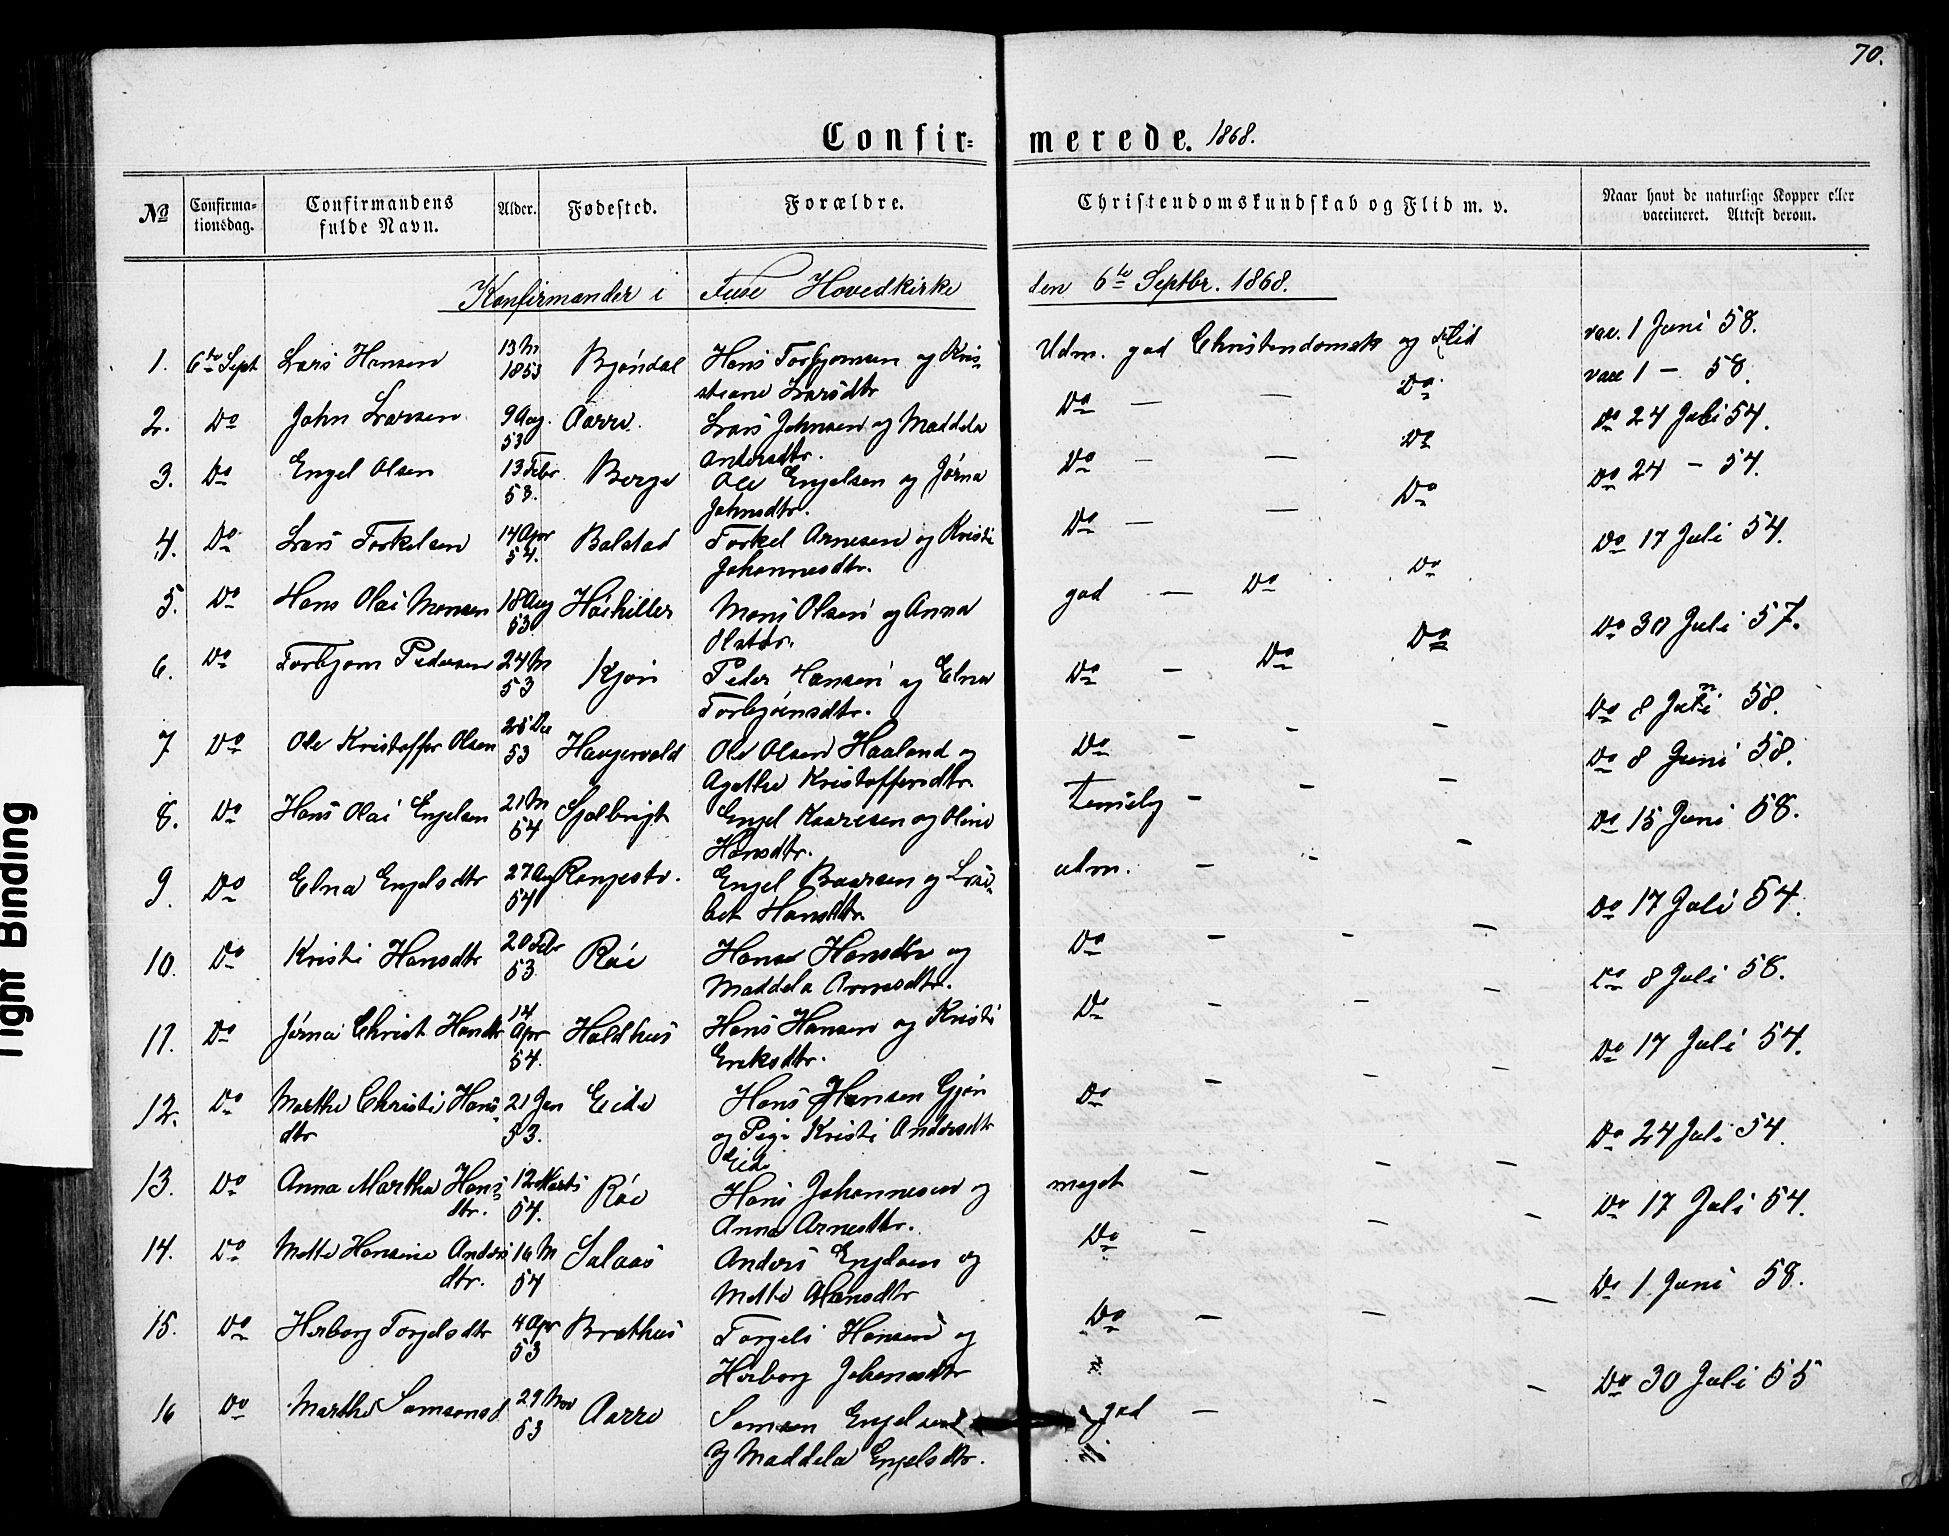 70.
Confir=merede. 1868.
No
Confirma=tionsdag.
Confirmandens fulde Navn.
Alder.
Fødested.
Forældre.
Christendomskundskab og Flid m. v.
Naar havt de naturlige Kopper eller vaccineret. Attest derom.
Konfirmander i Fuse Hovedkirke den 6te Septbr. 1868.
1. 6te Sept Lars Hansen 13 M 1853 Bjøndal Hans Torbjørnsen og Kristiane Larsdtr Udm. god Christendomsk og Flid vac. 1 Juni 58.
vacc 1 — 58.
2. Do John Larsen 9 Aug. 53 Aarre. Lars Johnsen og Maddela Andersdtr. Do — — Do
Do 24 Juli 54.
3. Do Engel Olsen 13 Febr 53. Berge Ole Engelsen og Jørna Johnsdtr. Do — — Do
Do 24 — 54.
4. Do Lars Torkelsen 14 Apr 54. Bolstad Torkel Arnesen og Kristi Johannesdtr. Do — — Do
Do 17 Juli 54.
5. Do Hans Olai Monsen 18 Aug 53. Mons Olsen og Anna Olsdtr. god — Do Do
Do 30 Juli 57.
6. Do Torbjørn Pedersen 24 M 53 Peder Hansen og Elna Torbjørnsdtr. Do — Do Do
Do 8 Juni 58.
7 Do Ole Kristoffer Olsen 53 Havgervold Ole Olsen Haaland og Agethe Kristoffersdtr Do — — —
Do 8 Juni 58.
8. Do Hans Olai Engelsen 21 M 54 Engel Kaaresen og Oline Hansdtr. temelig — — —
Do 15 Juni 58.
9. Do Elna Engelsdtr 27 Aug 54 Engel Baarsen og Hansdtr. udm. — — —
Do 17 Juli 54.
10. Do Kristi Hansdtr 20 Febr 53 Røe Hans og Maddela Arnesdtr. Do — — —
Do 8 Juli 58.
11. Do Jørna Christ Hansdtr 14 Apr 54. Holdhus Hans Hansen og Kristi Eriksdtr. Do — — —
Do 17 Juli 54.
12. Do Marthe Christi Hans=dtr 21 Jan 53. Eide Hans Hansen Gjøn og Pige Kristi Andersdtr Eide Do — —
Do 24 Juli 54.
13. Do Anna Martha Hans=dtr. 12 Marts 54. Røe Hans Johannesen og Anna Arnesdtr. meget — — —
Do 17 Juli 54.
14. Do Mette Hansine Anders dtr. 16 M 54 Anders Engelsen og Mette Hansdtr Do — — —
Do 1 Juni 58.
15. Do Herborg Torgelsdtr 4 Apr 53 Brathus Torgels Hansen og Herborg Johansdtr Do — —
16 Do Marthe Samsonsd 29 Nov 53 Aarre Samson Engelsen og Maddela Engelsdtr. god — — —
Do 30 Juli 55
Tight Binding